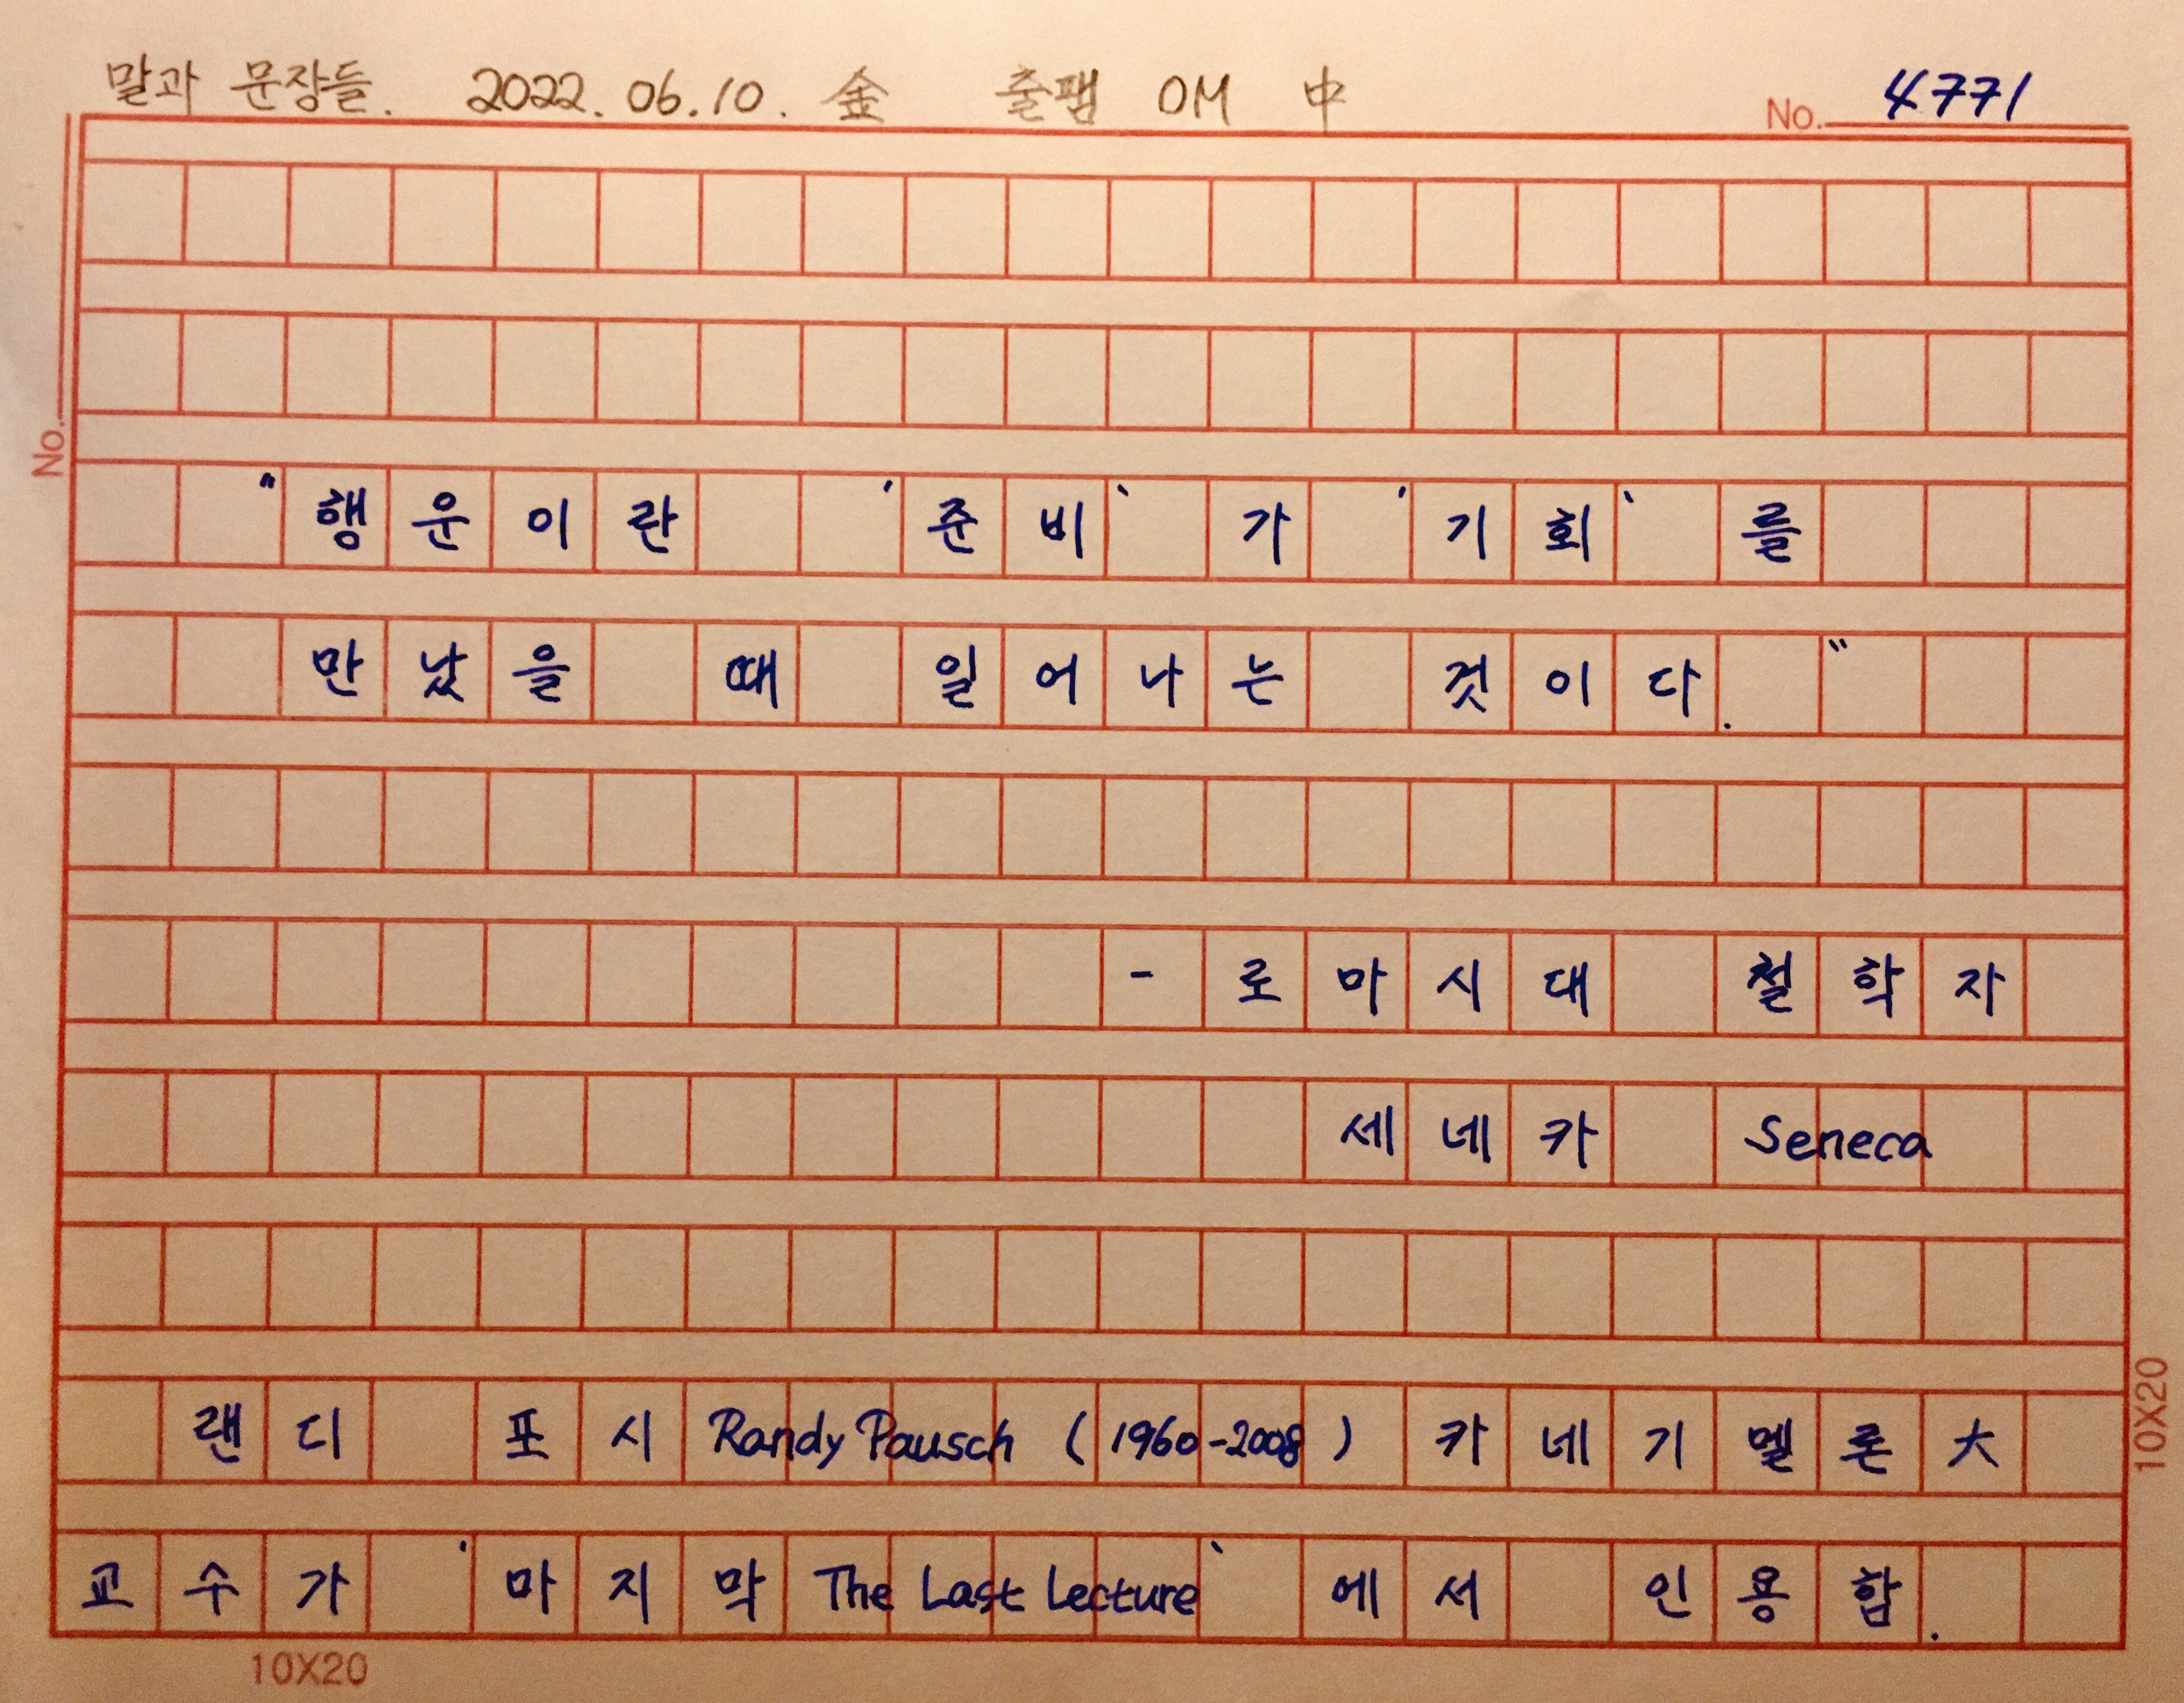 말과 문장들. 2022. 06. 10. 金 출팹 OM 中
No. 4771
No.
"행운이란 '준비' 가 '기회' 를
만났을 때 일어나는 것이다."
- 로마시대 철학자
세네카 Seneca
랜디 포시 Randy Pausch (1960-2008) 카네기멜론大
교수가 '마지막 The Last Lecture' 에서 인용함.
10X20
10X20